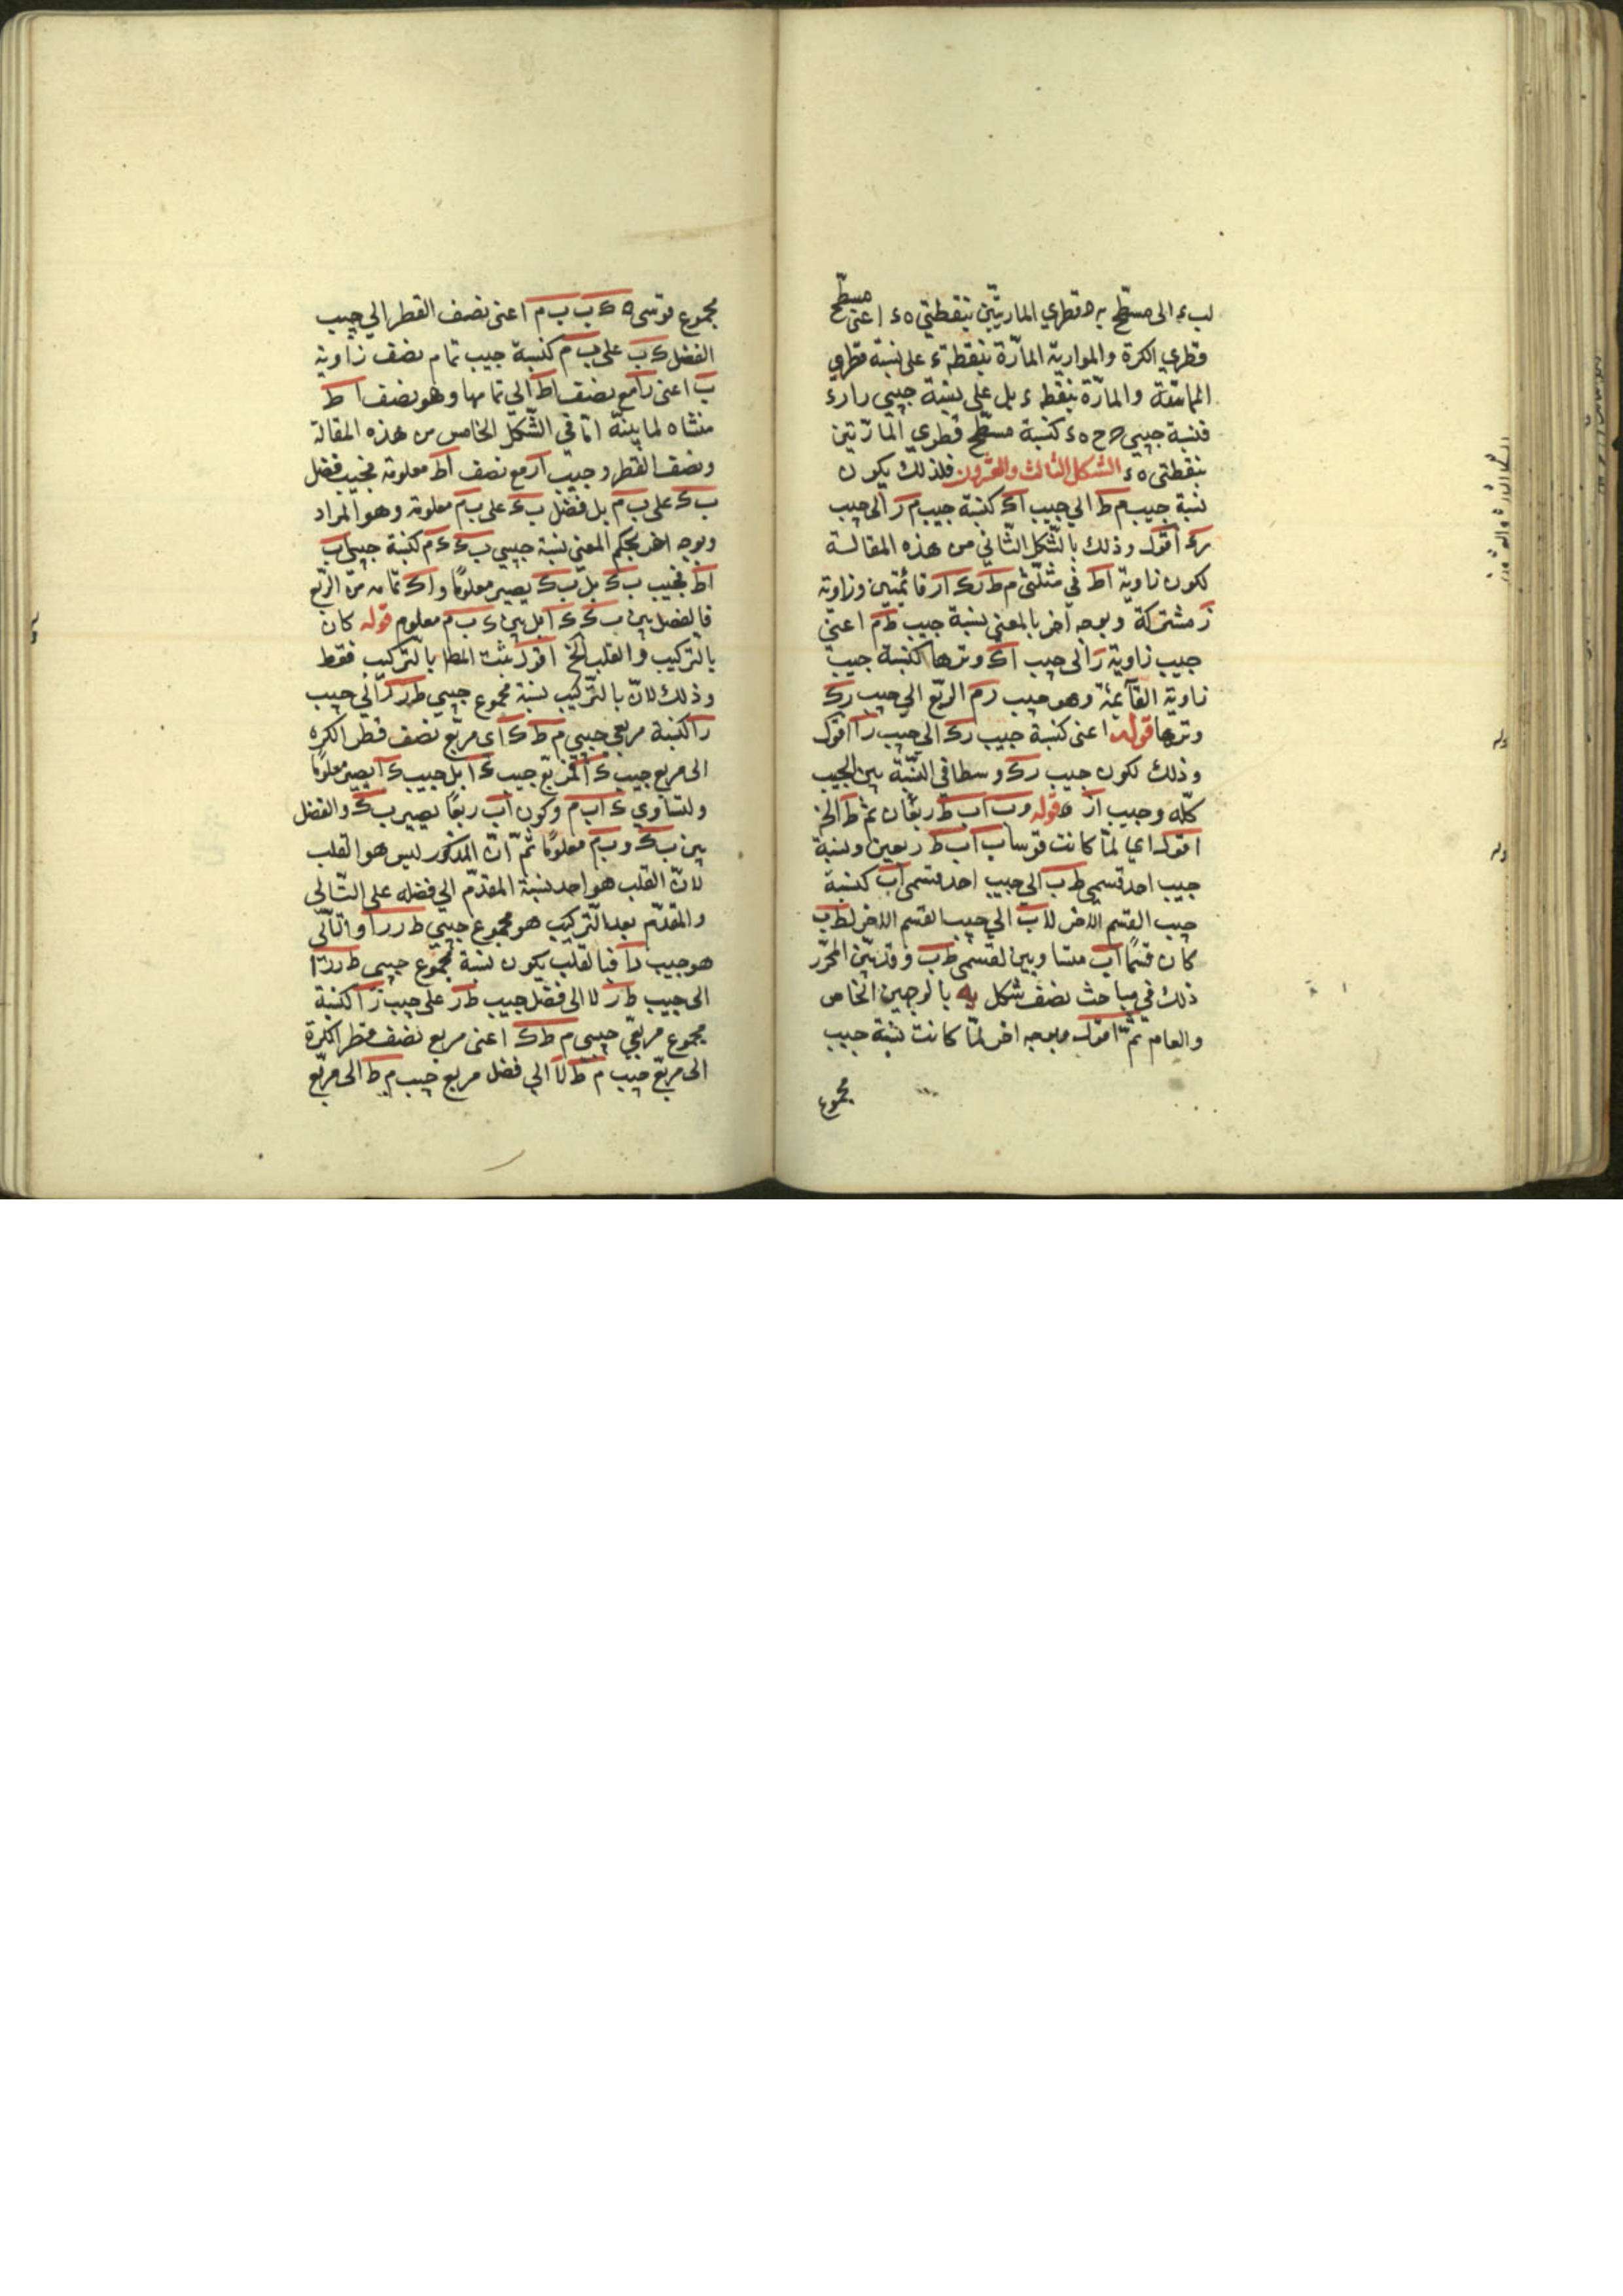 لب ء الى مسطح به ه قطري المارتين بنقطتي ه ء اعنى مسطح
قطري الكرة والموازية المارة بنقطة ء على نسبة قطري
المماسة والمارة بنقطة ء بل على نسبة جيبي ر ا ر ء
فنسبة جيبي ح ح ه ء كنسبة مسطح قطري المارتين
بنقطتى ه ء الشكل الثالث والعشرون فلذلك يكون
نسبة جيب م ط الى جيب اك كنسبة جيب م ر الى جيب
رك اقول وذلك بالشكل الثاني من هذه المقالة
لكون زاوية اط في مثلثى م ط ر ك ا ر قائمتين وزاوية
ر مشتركة وبوجه آخر بالمغنى نسبة جيب ط م اعنى
جيب زاوية ر الى جيب اك وترها كنسبة جيب
زاوية القآيمة وهو جيب ر م الربع الى جيب رك
وترها قوله اعنى كنسبة جيب رك الى جيب را اقول
وذلك لكون جيب رك وسطا في النسبة بين الجيب
كله وجيب ار ه قوله وب اب ط ربعان ثم ط الخ
اقول اي لما كانت قوسا ب اب ط ربعين ونسبة
جيب احد قسمي ط ب الى جيب احد قسمي اب كنسبة
جيب القسم الاخر لاب الى جيب القسم الاخر لط ب
كان قسما اب متساويين لقسمى ط ب وقد بين المحرر
ذلك في مباحث نصف شكل يه بالوجهين الخاص
والعام ثم اقول وبوجه اخر لما كانت نسبة جيب
مجموع
مجموع قوسى ه ك ب ب م اعنى نصف القطر الى جيب
الفضل ك ب على ب م كنسبة جيب تمام نصف زاوية
ب اعنى رامع نصف اط الى تمامها وهو نصف اط
منشاه لما بينه اتا في الشكل الخامس من هذه المقالة
ونصف القطر وجيب ار مع نصف اط معلومة فجيب فضل
ب ك على ب م بل فضل ب ك على ب م معلومة وهو المراد
وبوجه اخر بحكم المغنى نسبة جيبي ب ك ك م كنسبة جيبي اب
اط فجيب ب ك بل ب ك يصير معلوما و اك تمامه من الربع
فالفضل بين ب ك ك ا بل بين ك ب م معلوم قوله كان
بالتركيب والقلب الخ اقول يثبت المط بالتركيب فقط
وذلك لان بالتركيب نسبة مجموع جيبي ط ر ر ا الى جيب
را كنسبة مربعي جيبي م ط ك اى مربع نصف قطر الكره
الى مربع جيب ك ا فمربع جيب ك ا بل جيب ك ا يصير معلوما
ولتساوي ك ا ب م وكون اب ربعا يصير ب ك والفضل
بين ب ك و ب م معلوما ثم ان المذكور ليس هو القلب
لان القلب هو احد نسبة المقدم الى فضله على التالى
والمقدم بعد التركيب هو مجموع جيبي ط ر ر ا والتالى
هو جيب را فبالقلب يكون نسبة مجموع جيبي ط ر ر ا
الى جيب ط ر لا الى فضل جيب ط ر على جيب ر ا كنسبة
مجموع مربعي جيبي م ط ك اعنى مربع نصف قطر الكرة
الى مربع جيب م ط لا الى فضل مربع جيب م ط الى مربع